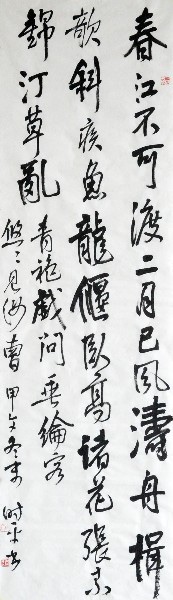 春江不可渡二月已風濤舟楫
欹斜疾魚龍偃臥高渚花張素
錦汀草亂青袍戲問垂綸客
悠々見汝曹甲午冬末时平书